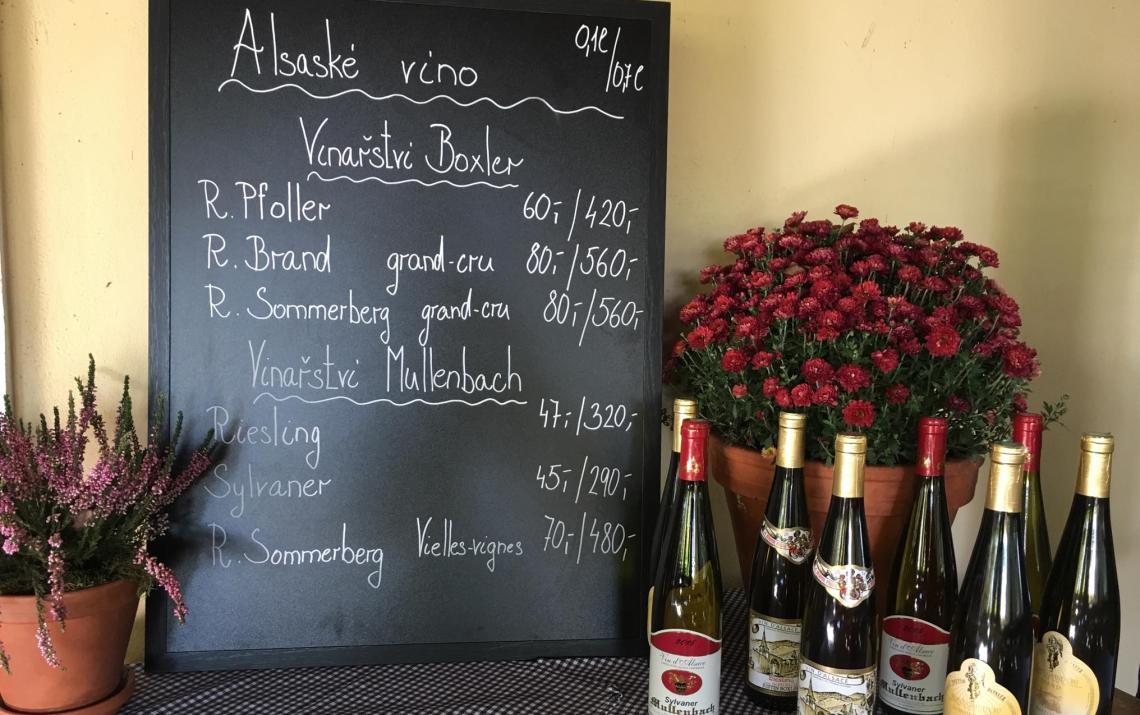 Alsaské víno 0,1l/0,7l
Vinařství Boxler
R. Pfoller 60,-/420,-
R. Brand grand-cru 80,-/560,-
R. Sommerberg grand-cru 80,-/560,-
Vinařství Mullenbach
Riesling 47,-/320,-
Sylvaner 45,-/290,-
R. Sommerberg Vielles-vignes 70,-/480,-
Vin d'Alsace
Sylvaner
Mullenbach
VIN D'ALSACE
VIN D'ALSACE
Vin d'Alsace
Sylvaner
Mullenbach